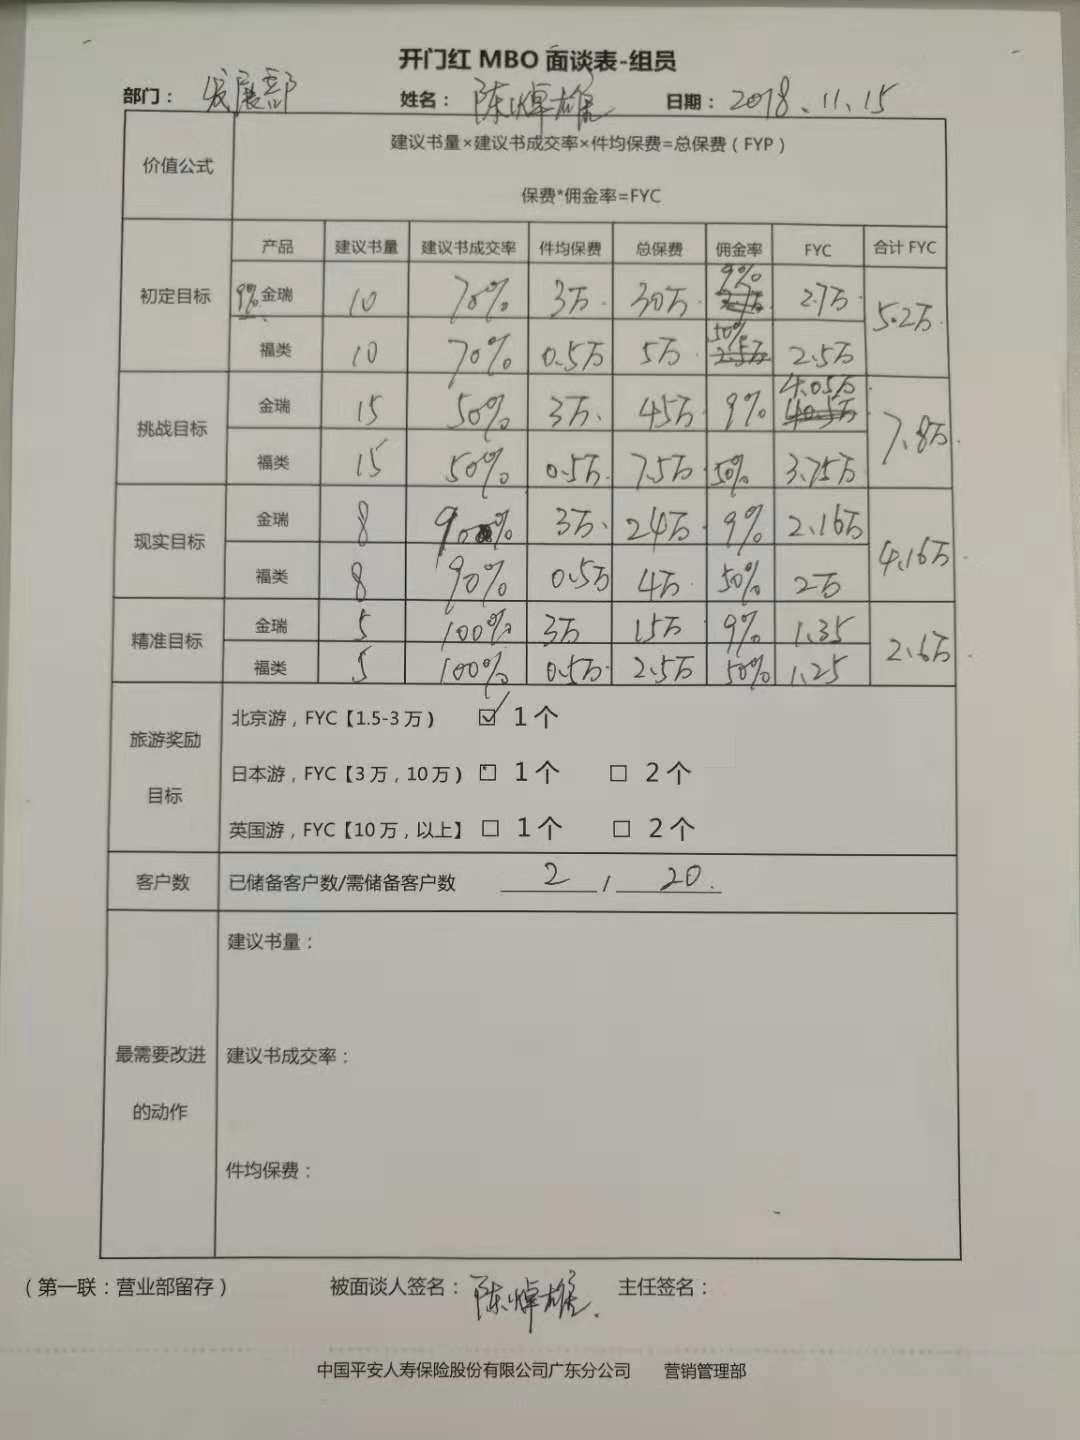 开门红 MBO 面谈表-组员
部门： 发展部 姓名： 陈焯雄 日期： 2018.11.15
价值公式
建议书量×建议书成交率×件均保费=总保费（FYP）
保费*佣金率=FYC
产品 建议书量 建议书成交率 件均保费 总保费 佣金率 FYC 合计 FYC
初定目标
9% 金瑞 10 70% 3万 30万 9% 2.7万 5.2万
福类 10 70% 0.5万 5万 50% 2.5万
挑战目标
金瑞 15 50% 3万 45万 9% 4.05万 7.8万
福类 15 50% 0.5万 7.5万 50% 3.75万
现实目标
金瑞 8 90% 3万 24万 9% 2.16万 4.16万
福类 8 90% 0.5万 4万 50% 2万
精准目标
金瑞 5 100% 3万 15万 9% 1.35 2.6万
福类 5 100% 0.5万 2.5万 50% 1.25
旅游奖励
目标
北京游，FYC【1.5-3 万） ☑ 1 个
日本游，FYC【3 万，10 万） □ 1 个 □ 2 个
英国游，FYC【10 万，以上】 □ 1 个 □ 2 个
客户数 已储备客户数/需储备客户数 2 / 20
最需要改进
的动作
建议书量：
建议书成交率：
件均保费：
（第一联：营业部留存） 被面谈人签名： 陈焯雄 主任签名：
中国平安人寿保险股份有限公司广东分公司 营销管理部